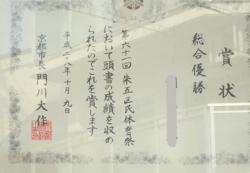 賞状
総合優勝
第六十一回朱五区民体育祭
において頭書の成績を収め
られたのでこれを賞します
平成二八年十月九日
京都市長 門川大作